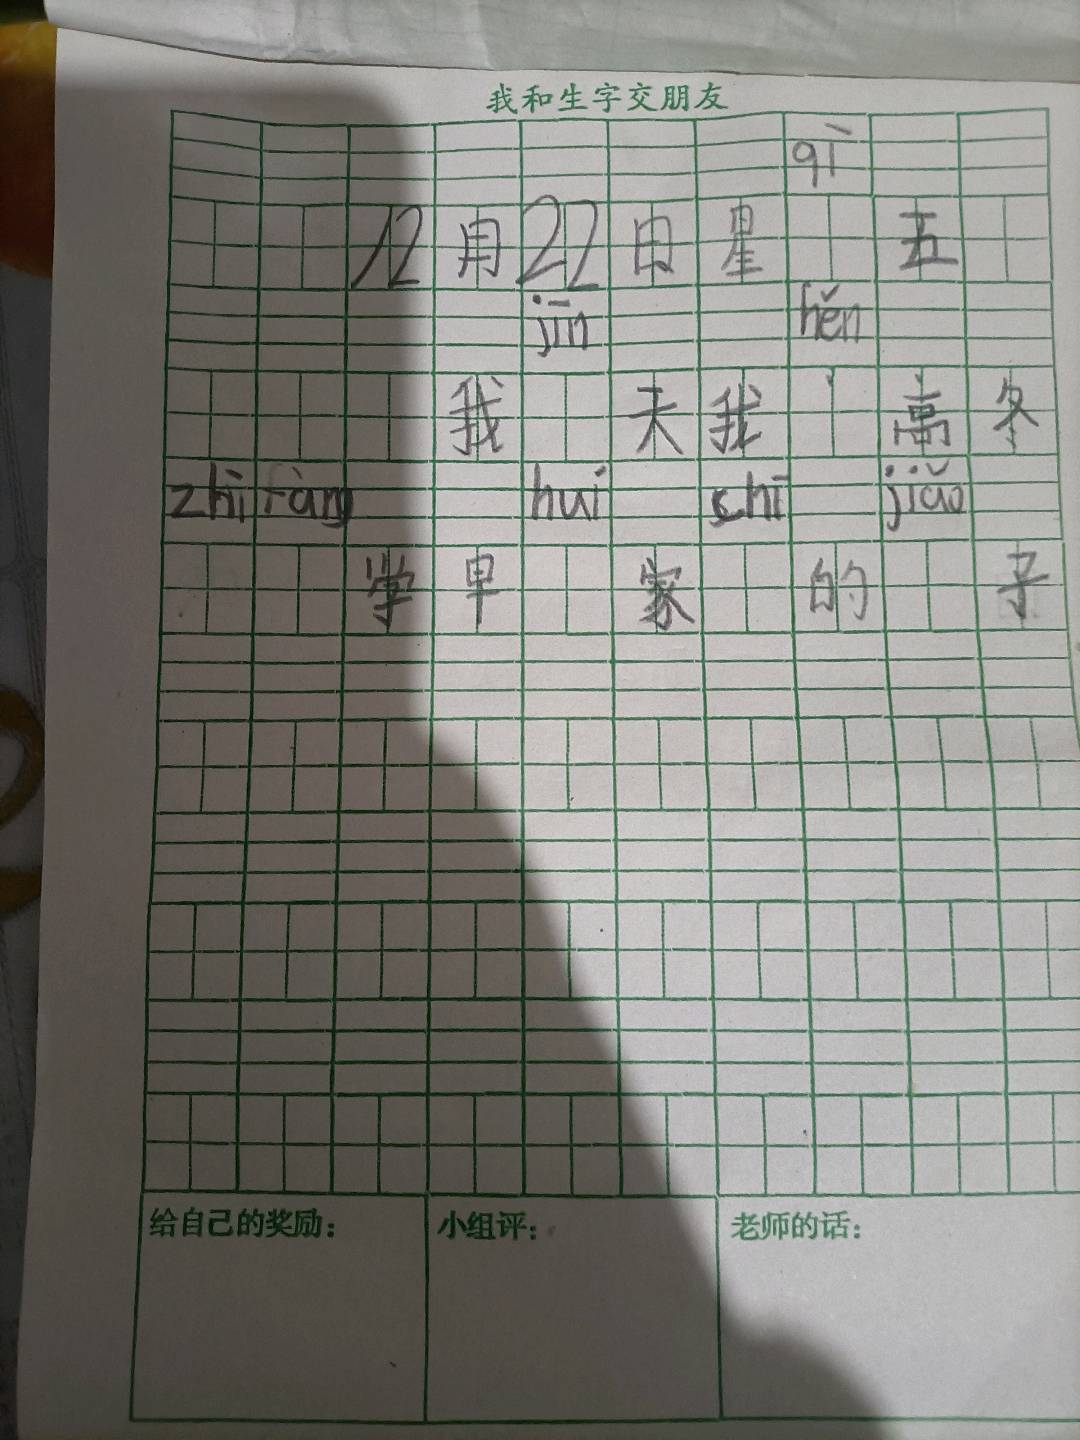 我和生字交朋友
qì
12月22日星 五
jīn hěn
我 天我 高冬
zhì fàng huí chī jiǎo
学早 家 的 子
给自己的奖励： 小组评： 老师的话：